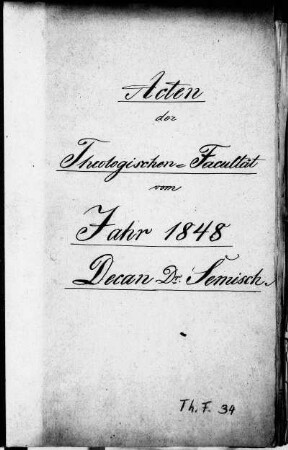 Acten
der
Theologischen Facultät
vom
Jahr 1848
Decan Dr. Semisch.
Th. F. 34